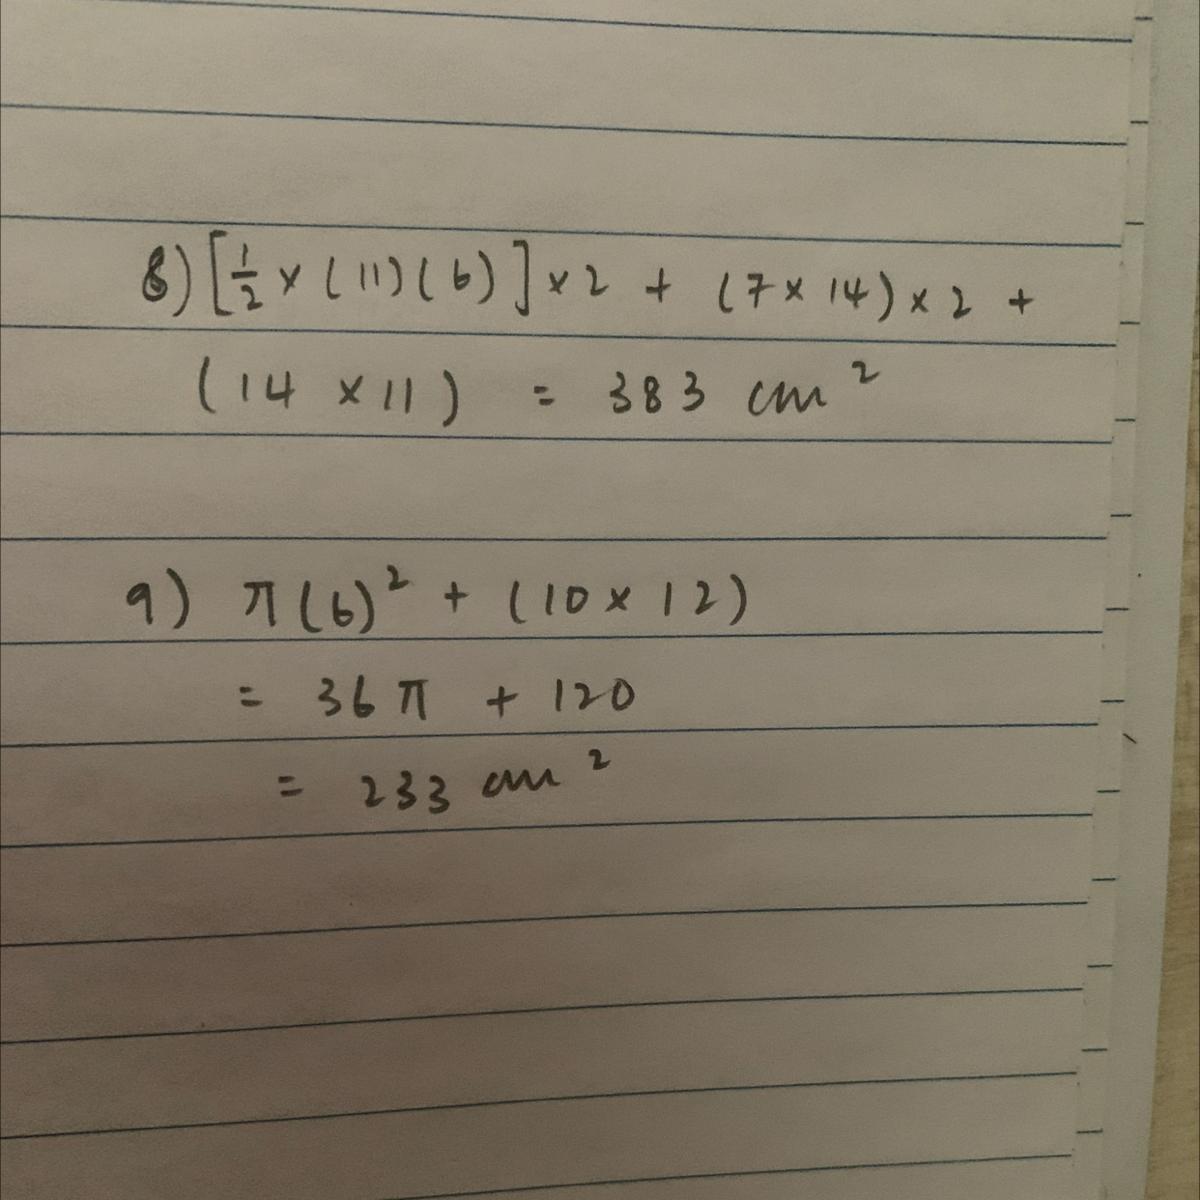 8) [1/2 × (11)(6)] × 2 + (7 × 14) × 2 +
(14 × 11) = 383 cm²
9) π(6)² + (10 × 12)
= 36π + 120
= 233 cm²